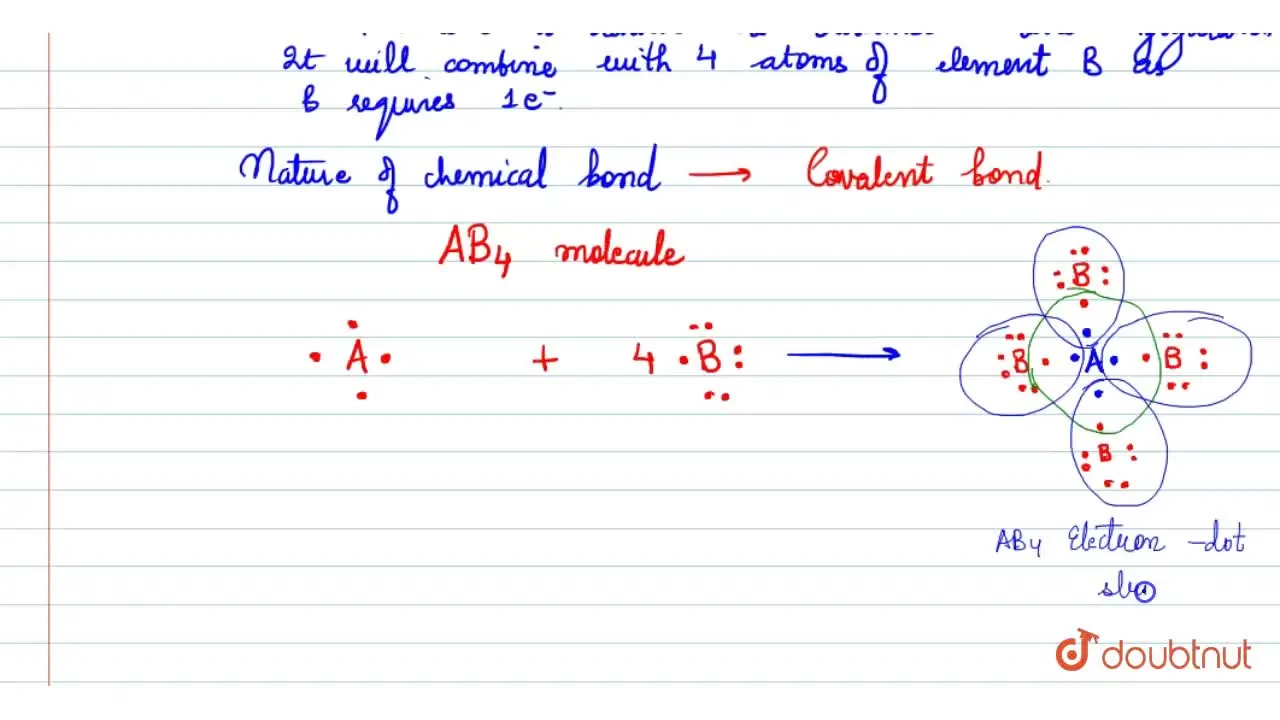 It will combine with 4 atoms of element B as
B requires 1e⁻.
Nature of chemical bond → Covalent bond.
AB₄ molecule
A + 4 B → B
B A B
B
AB₄ Electron-dot
doubtnut